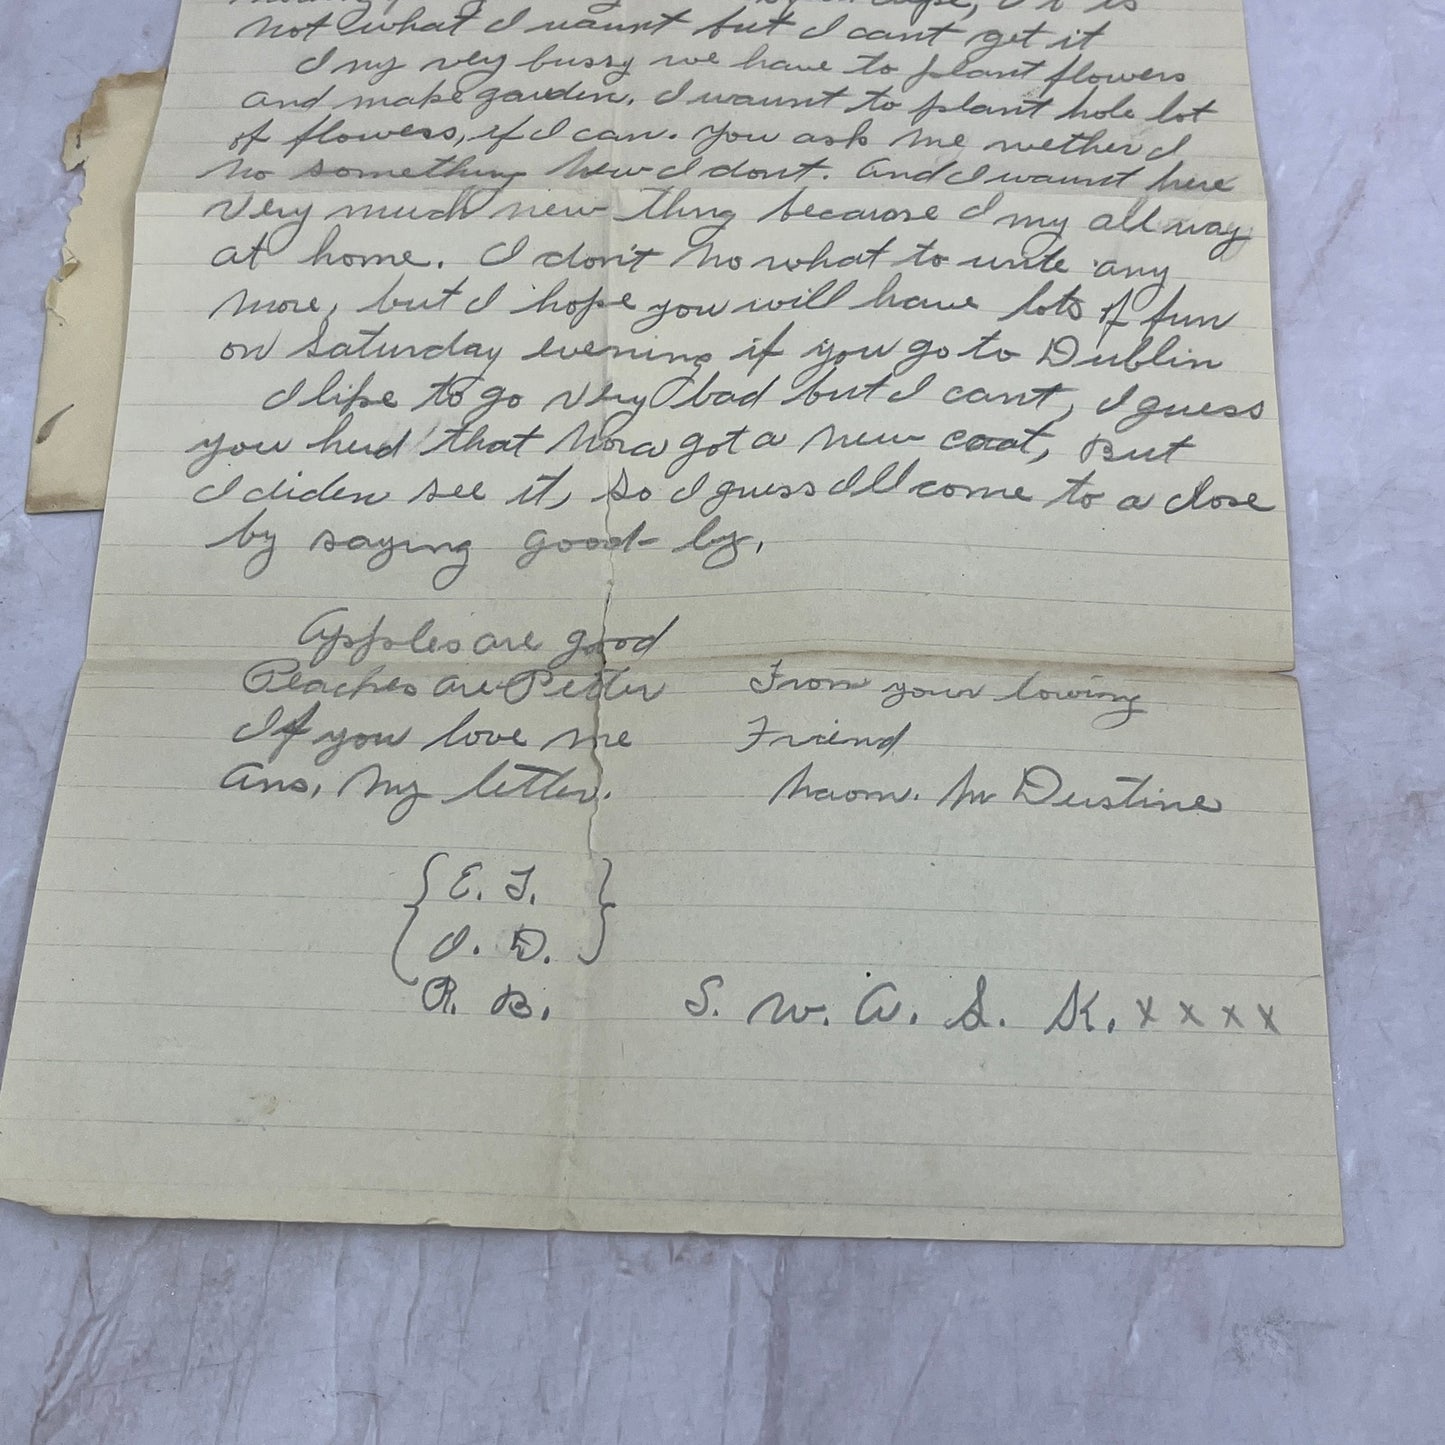 not what I waunt but I cant get it
I my very bussy we have to plant flowers
and make garden. I waunt to plant hole lot
of flowers, if I can. You ask me wether I
no something new I dont. And I waunt here
very much new thng because I my all way
at home. I don't no what to write any
more, but I hope you will have lots of fun
on Saturday evening if you go to Dublin
I like to go very bad but I cant, I guess
you herd that Nora got a new coat, But
I diden see it, so I guess Ill come to a close
by saying good-by,
Apples are good
Peaches are Petter
If you love me
Ans, my letter.
From your loving
Friend
Naom. M Dustine
E. T.
I. D.
R. B.
S. W. A. S. K. x x x x